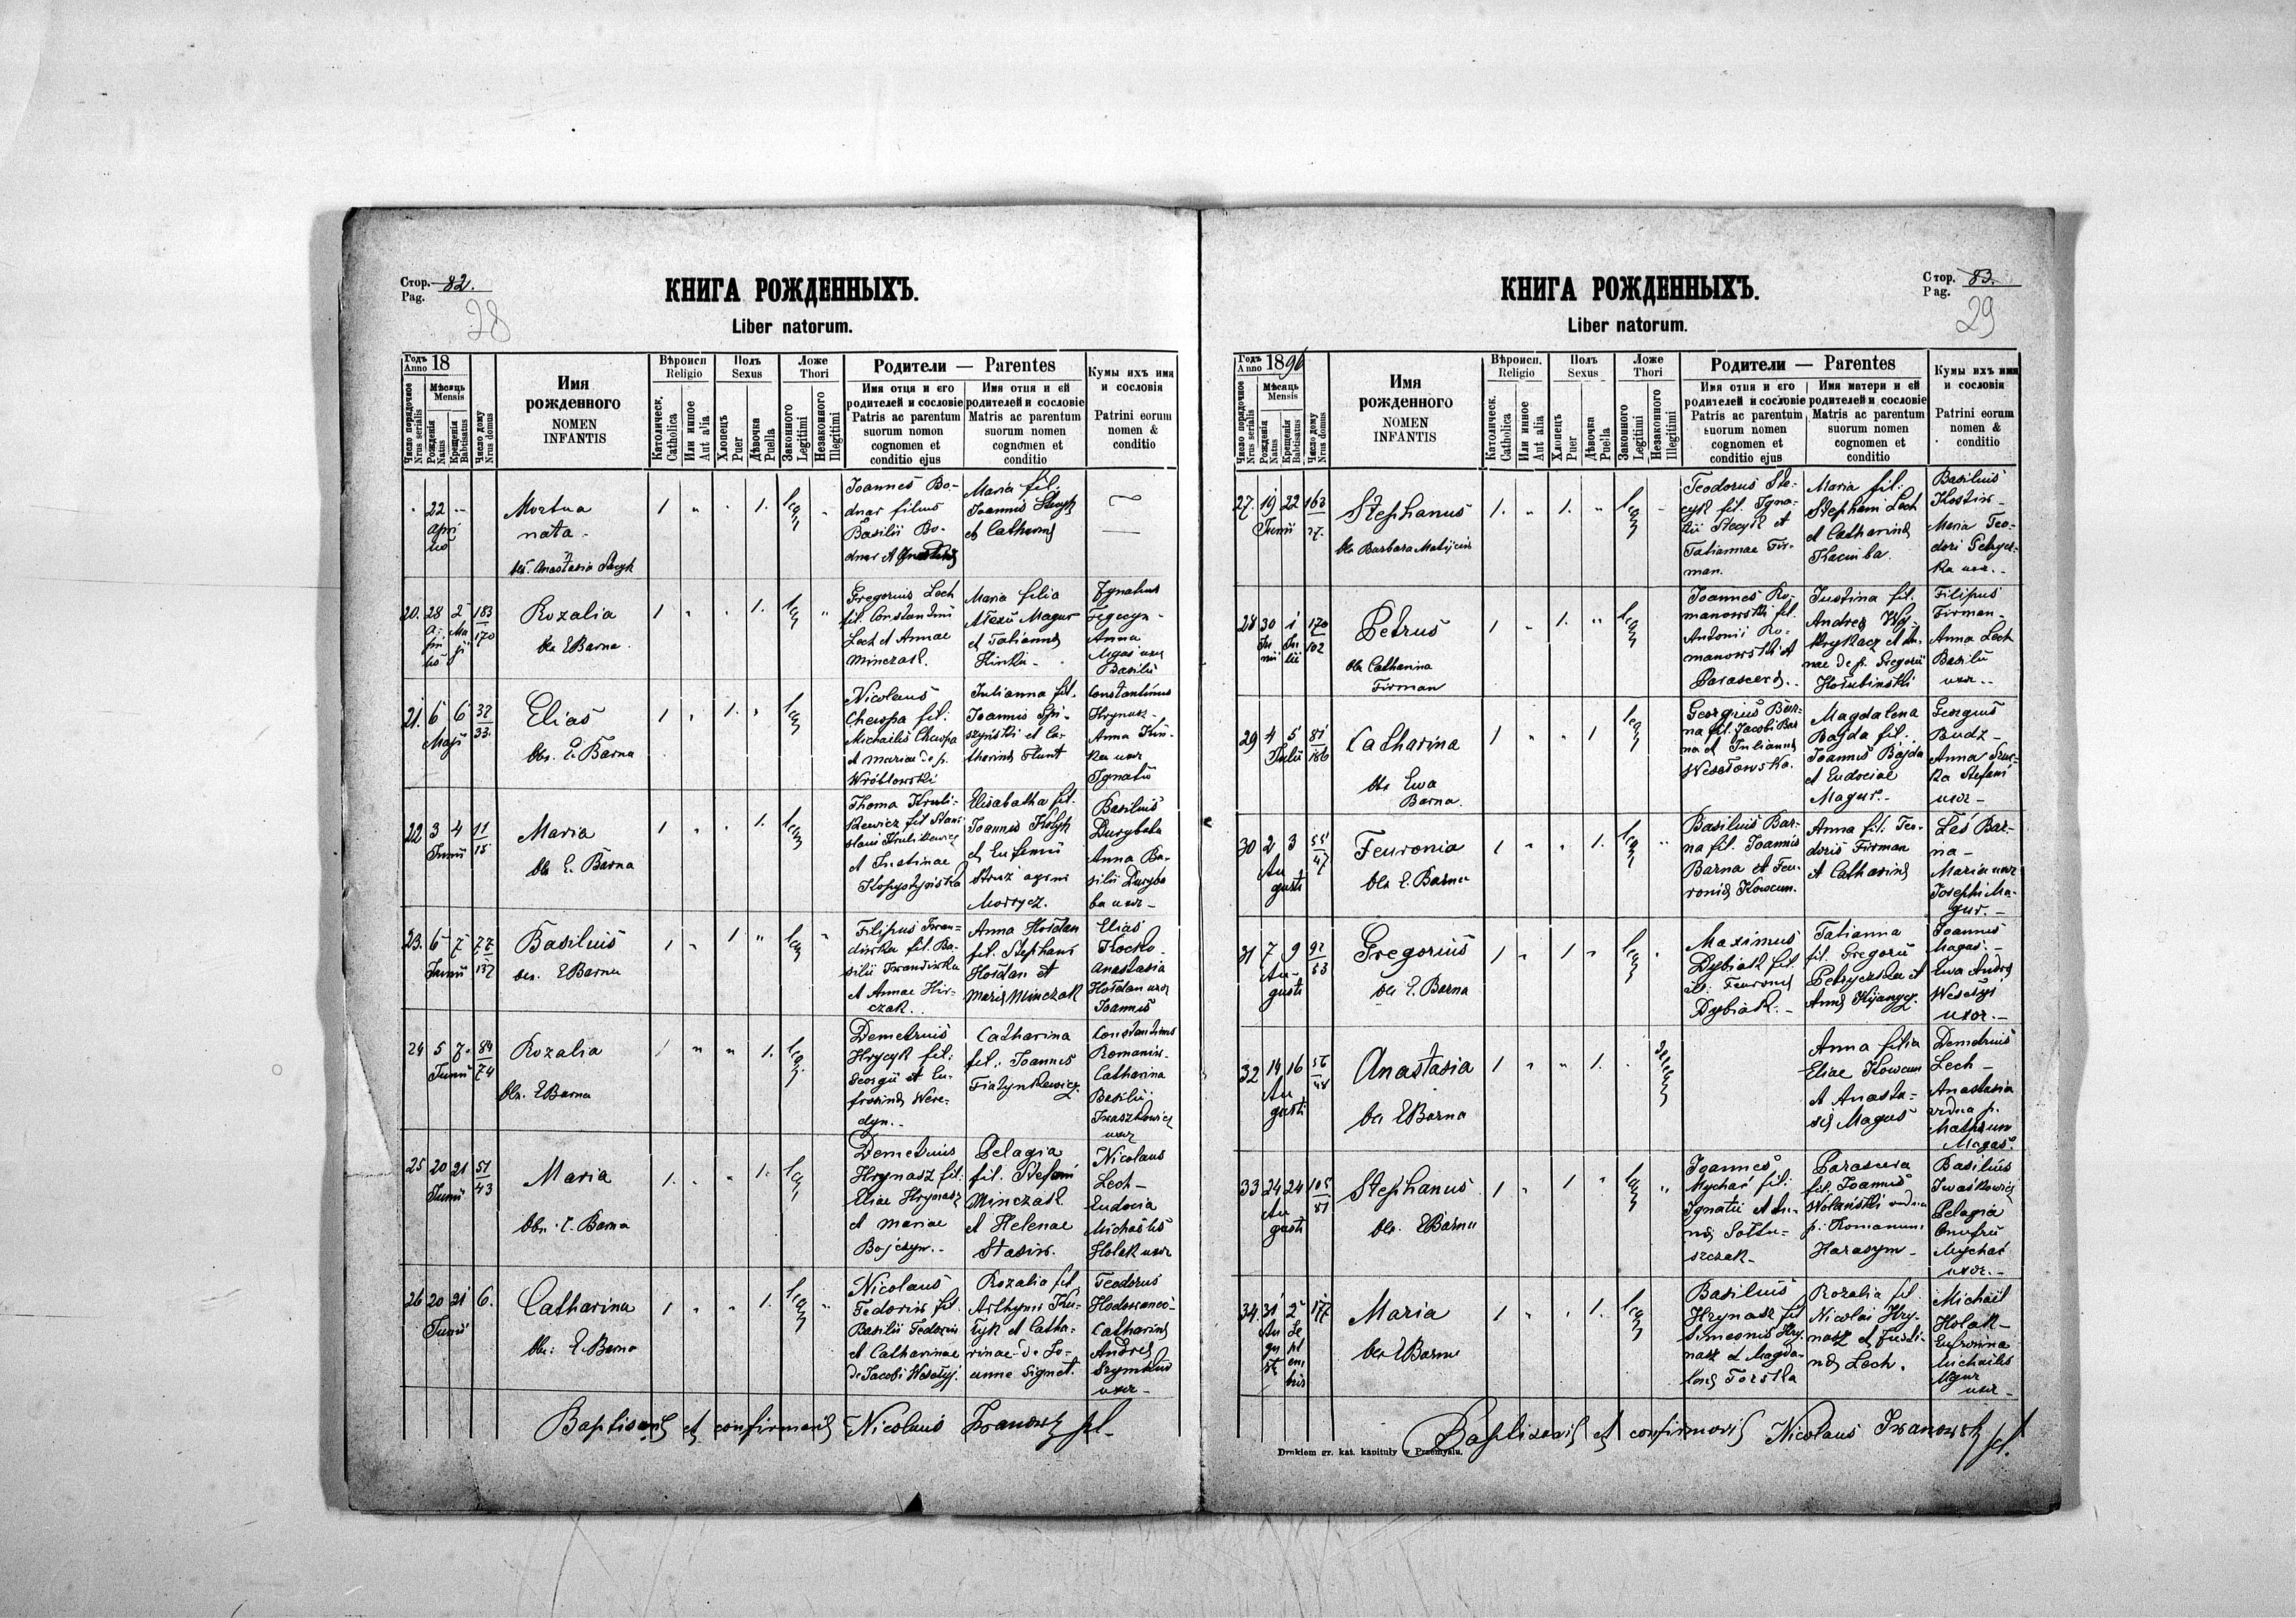 Стор. 82.
Pag.
28
КНИГА РОЖДЕННЫХЪ.
Liber natorum.
Годъ
Anno 18
Мѣсяць
Mensis
Число порядочное
Nrus serialis
Рожденія
Natus
Крещенія
Babtisatus
Число дому
Nrus domus
Имя
рожденного
NOMEN
INFANTIS
Вѣроисп
Religio
Католическ.
Catholica
Или инное
Aut alia
Полъ
Sexus
Хлопецъ
Puer
Дѣвочка
Puella
Ложе
Thori
Законного
Legitimi
Незаконного
Illegitimi
Родители — Parentes
Имя отця и его
родителей и сословіе
Patris ac parentum
suorum nomon
cognomen et
conditio ejus
Имя отця и ей
родителей и сословіе
Matris ac parentum
suorum nomen
cognomen et
conditio
Кумы ихъ имя
и сословія
Patrini eorum
nomen &
conditio
22
Mortua
nata
obs. Anastasia
1 1. leg
Joannes Bo-
dnar filius
Basilii Bo-
dnar et
Maria fil.
Joannis
et Catharinae
20. 28 2 183
170
Rozalia
obs E Barna
1 1. leg
Gregorius Lech
fil. Constantini
Lech et Annae
Minczak.
Maria filia
Alexii Magur
et Tatiannae
Hinka -
Ignatius
Fegecyn -
Anna
Magas uxor
Basilii
21. 6 6 32
33.
Maji
Elias
obs. E. Barna
1 1. leg
Nicolaus
Chuspa fil.
Michaelis Chuspa
et Mariae de p.
Wróblowski
Julianna fil.
Joannis Spi-
szyński et Ca-
tharinae
Constantinus
Hrynasz -
Anna
uxor
Ignatii
22 3 4 11
15
Junii
Maria
obs E. Barna
1 1. leg
Thoma Kruli-
kewicz fil Stani
slaii Krulikewicz
et Justinae
Kopystyńska
Elisabetha fil.
Joannis
et Eufemii
Struz agni
Morrycz.
Basilius
Durybaba
Anna Ba-
silii Duryba
ba uxor -
23. 6 7 77
137
Junii
Basilius
obs. E Barna
1 1 leg
Filipus Iwan-
dirska fil. Ba-
silii Iwandirska
et Annae Hir-
czak.
Anna Hoďdan
fil. Stephani
Hoďdan et
Mariae Minczak
Elias
Kocko -
Anastasia
Hoďdan uxor
Joannis
24 5 7. 84
74
Junii
Rozalia
obs. E Barna
1 1. leg
Demetrius
Hrycyk fil:
Georgii et Eu-
frosinae Were-
dyn. -
Catharina
fil: Joannis
Fiałynkiewicz
Constantinus
Romaniw -
Catharina
Basilii
Iwaszkowicz
uxor
25 20 21 51
43
Junii
Maria
obs. E. Barna
1. 1. leg
Demetrius
Hrynasz fil:
Eliae Hrynasz
et Mariae
Bojczyn. -
Pelagia
fil. Stefani
Minczak
et Helenae
Stasiw.
Nicolaus
Lech -
Eudocia
Michaelis
Holak uxor
26 20 21 6.
Junii
Catharina
obs: E. Barna
1 1. leg
Nicolaus
Fedoriw fil.
Basilii Fedoriw
et Catharinae
de Jacobi Wesołyj.
Rozalia fil.
Arthymi Ku-
ryk et Catha-
rinae de Jo-
anne Signet.
Teodorus
Hodowanec -
Catharina
Andreae
Szymków
uxor -
Baptisavi et confirmavi Nicolaus Iwanowski
Стор. 83.
Pag.
29
КНИГА РОЖДЕННЫХЪ.
Liber natorum.
Годъ
Anno 1896
Мѣсяць
Mensis
Число порядочное
Nrus serialis
Рожденія
Natus
Крещенія
Babtisatus
Число дому
Nrus domus
Имя
рожденного
NOMEN
INFANTIS
Вѣроисп.
Religio
Католическ.
Catholica
Или инное
Aut alia
Полъ
Sexus
Хлопецъ
Puer
Дѣвочка
Puella
Ложе
Thori
Законного
Legitimi
Незаконного
Illegitimi
Родители — Parentes
Имя отця и его
родителей и сословіе
Patris ac parentum
suorum nomen
cognomen et
conditio ejus
Имя матери и ей
родителей и сословіе
Matris ac parentum
suorum nomen
cognomen et
conditio
Кумы ихъ имя
и сословія
Patrini eorum
nomen &
conditio
27. 19 22 163
27.
Junii
Stephanus
obs Barbara Matijciw
1. 1. leg
Teodorus Ste-
cyk fil. Igna-
tii Stecyk et
Tatiannae Fir-
man.
Maria fil:
Stephani Lech
et Catharinae
Kacuiba.
Basilius
Kostiw -
Maria Teo-
dori Petryc-
ka uxor. -
28 30 1 170
102
Petrus
obs Catharina
Firman
1 1. leg
Joannes Ro-
manowski fil.
Antonii Ro-
manowski et
Parascevae. -
Justina fil.
Andreae Wy-
krykacz et An-
nae de p. Gregorii
Hołubinski
Filipus
Firman -
Anna Lech
Basilii
uxor. -
29 4 5 81
186
Julii
Catharina
obs Ewa
Barna.
1 1 leg
Georgius Bar-
na fil. Jacobi Bar
na et Juliannae
Wesołowska.
Magdalena
Bajda fil.
Joannis Bajda
et Eudociae
Magur. -
Georgius
Budz -
Anna
Stefani
uxor -
30 2 3 55
47
Au
gusti
Feuronia
obs E. Barna
1 1. leg
Basilius Bar-
na fil. Joannis
Barna et Feu-
roniae Kowcun.
Anna fil: Teo-
doris Firman
et Catharinae
Les Bar-
na -
Maria uxor
Josephi Ma-
gur. -
31 7 9 92
53
Au-
gusti
Gregorius
obs E. Barna
1 1 leg
Maximus
Dybiak fil.
Feuroniae
Dybiak. -
Tatianna
fil. Gregorii
Petryczka et
Annae Kijanycz.
Joannes
Magas. -
Ewa Andreae
Wesołyj
uxor. -
32 14 16 56
48
Au
gusti
Anastasia
obs E Barna
1 1. Illeg
Anna filia
Eliae Kowcun
et Anasta-
siae Magas
Demetrius
Lech -
Anastasia
vidua p.
Matheum
Magas.
33 24 24 105
81
Au
gusti
Stephanus
obs. E Barna
1 1 leg
Joannes
Mychać fil:
Ignatii et An-
nae Sołtu-
szczak -
Parasceva
fil. Joannis
Wolański vidua
p: Romanum
Harasym -
Basilius
Iwaśkowicz
Pelagia
Onufrii
Mychać
uxor. -
34. 31 2 177
Au
gu
sti
Se
pt
em
bris
Maria
obs E Barna
1 1. leg
Basilius
Hrynasz fil
Simeonis Hry
nasz et Magda-
lenae Torska
Rozalia fil.
Nicolai Hry-
nasz et Justi-
nae Lech.
Michaił
Holak -
Eufrosina
Michaelis
Magur
uxor -
Baptizavi et confirmavi Nicolaus Iwanowski
Drukiem gr. kat. kapituły w Przemyślu.